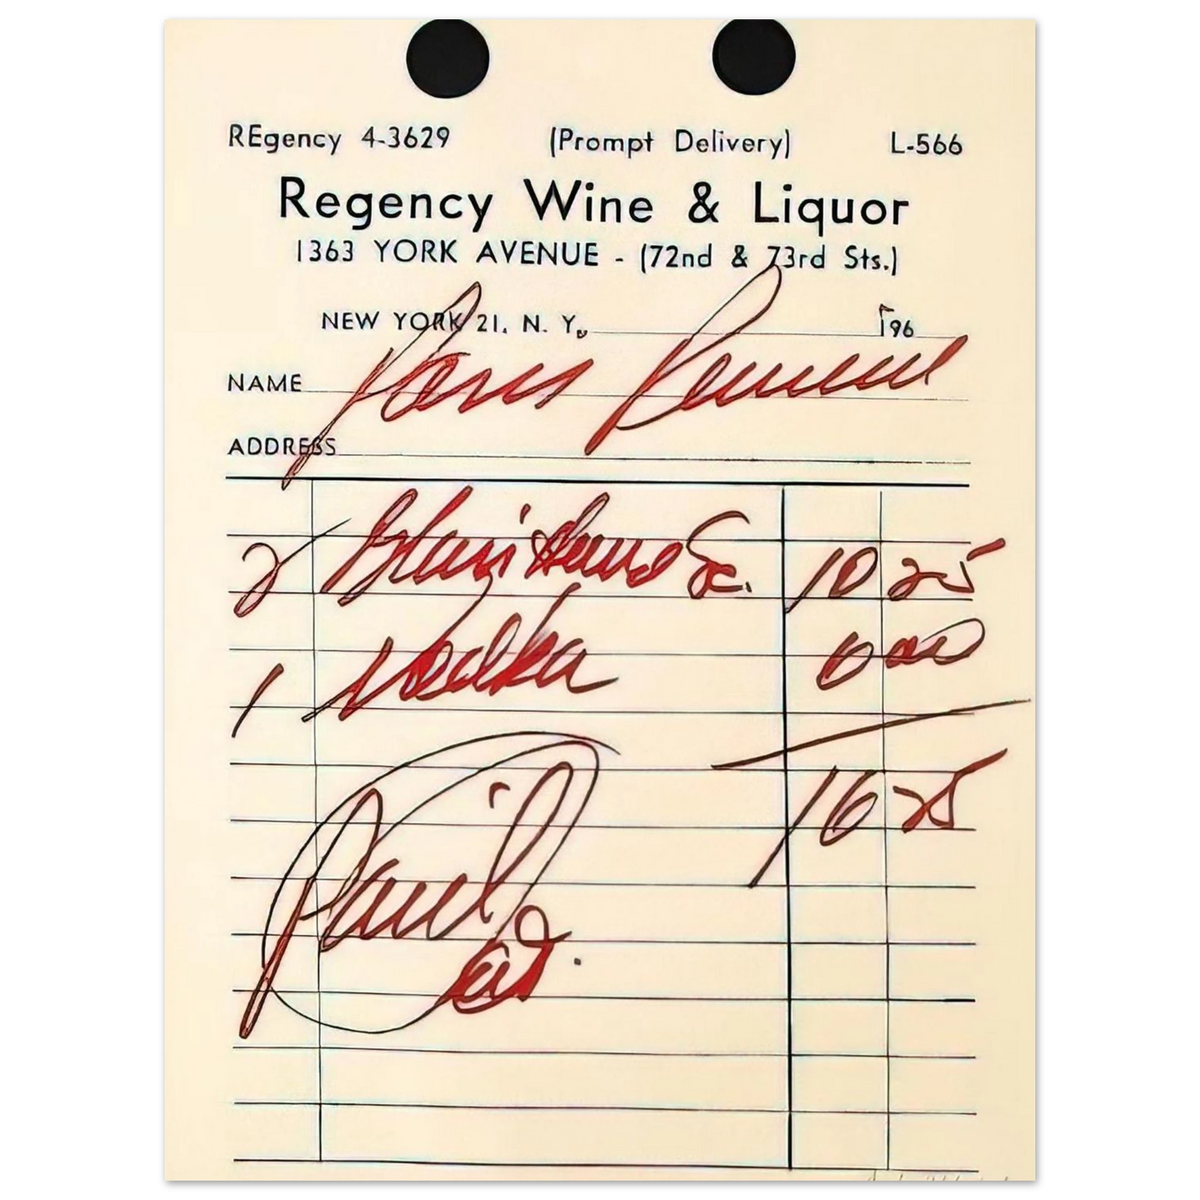 REgency 4-3629 (Prompt Delivery) L-566
Regency Wine & Liquor
1363 YORK AVENUE - (72nd & 73rd Sts.)
NEW YORK 21, N. Y. 196
NAME
ADDRESS
2 Sc. 10 25
1 Vodka 6 00
16 25
Paid